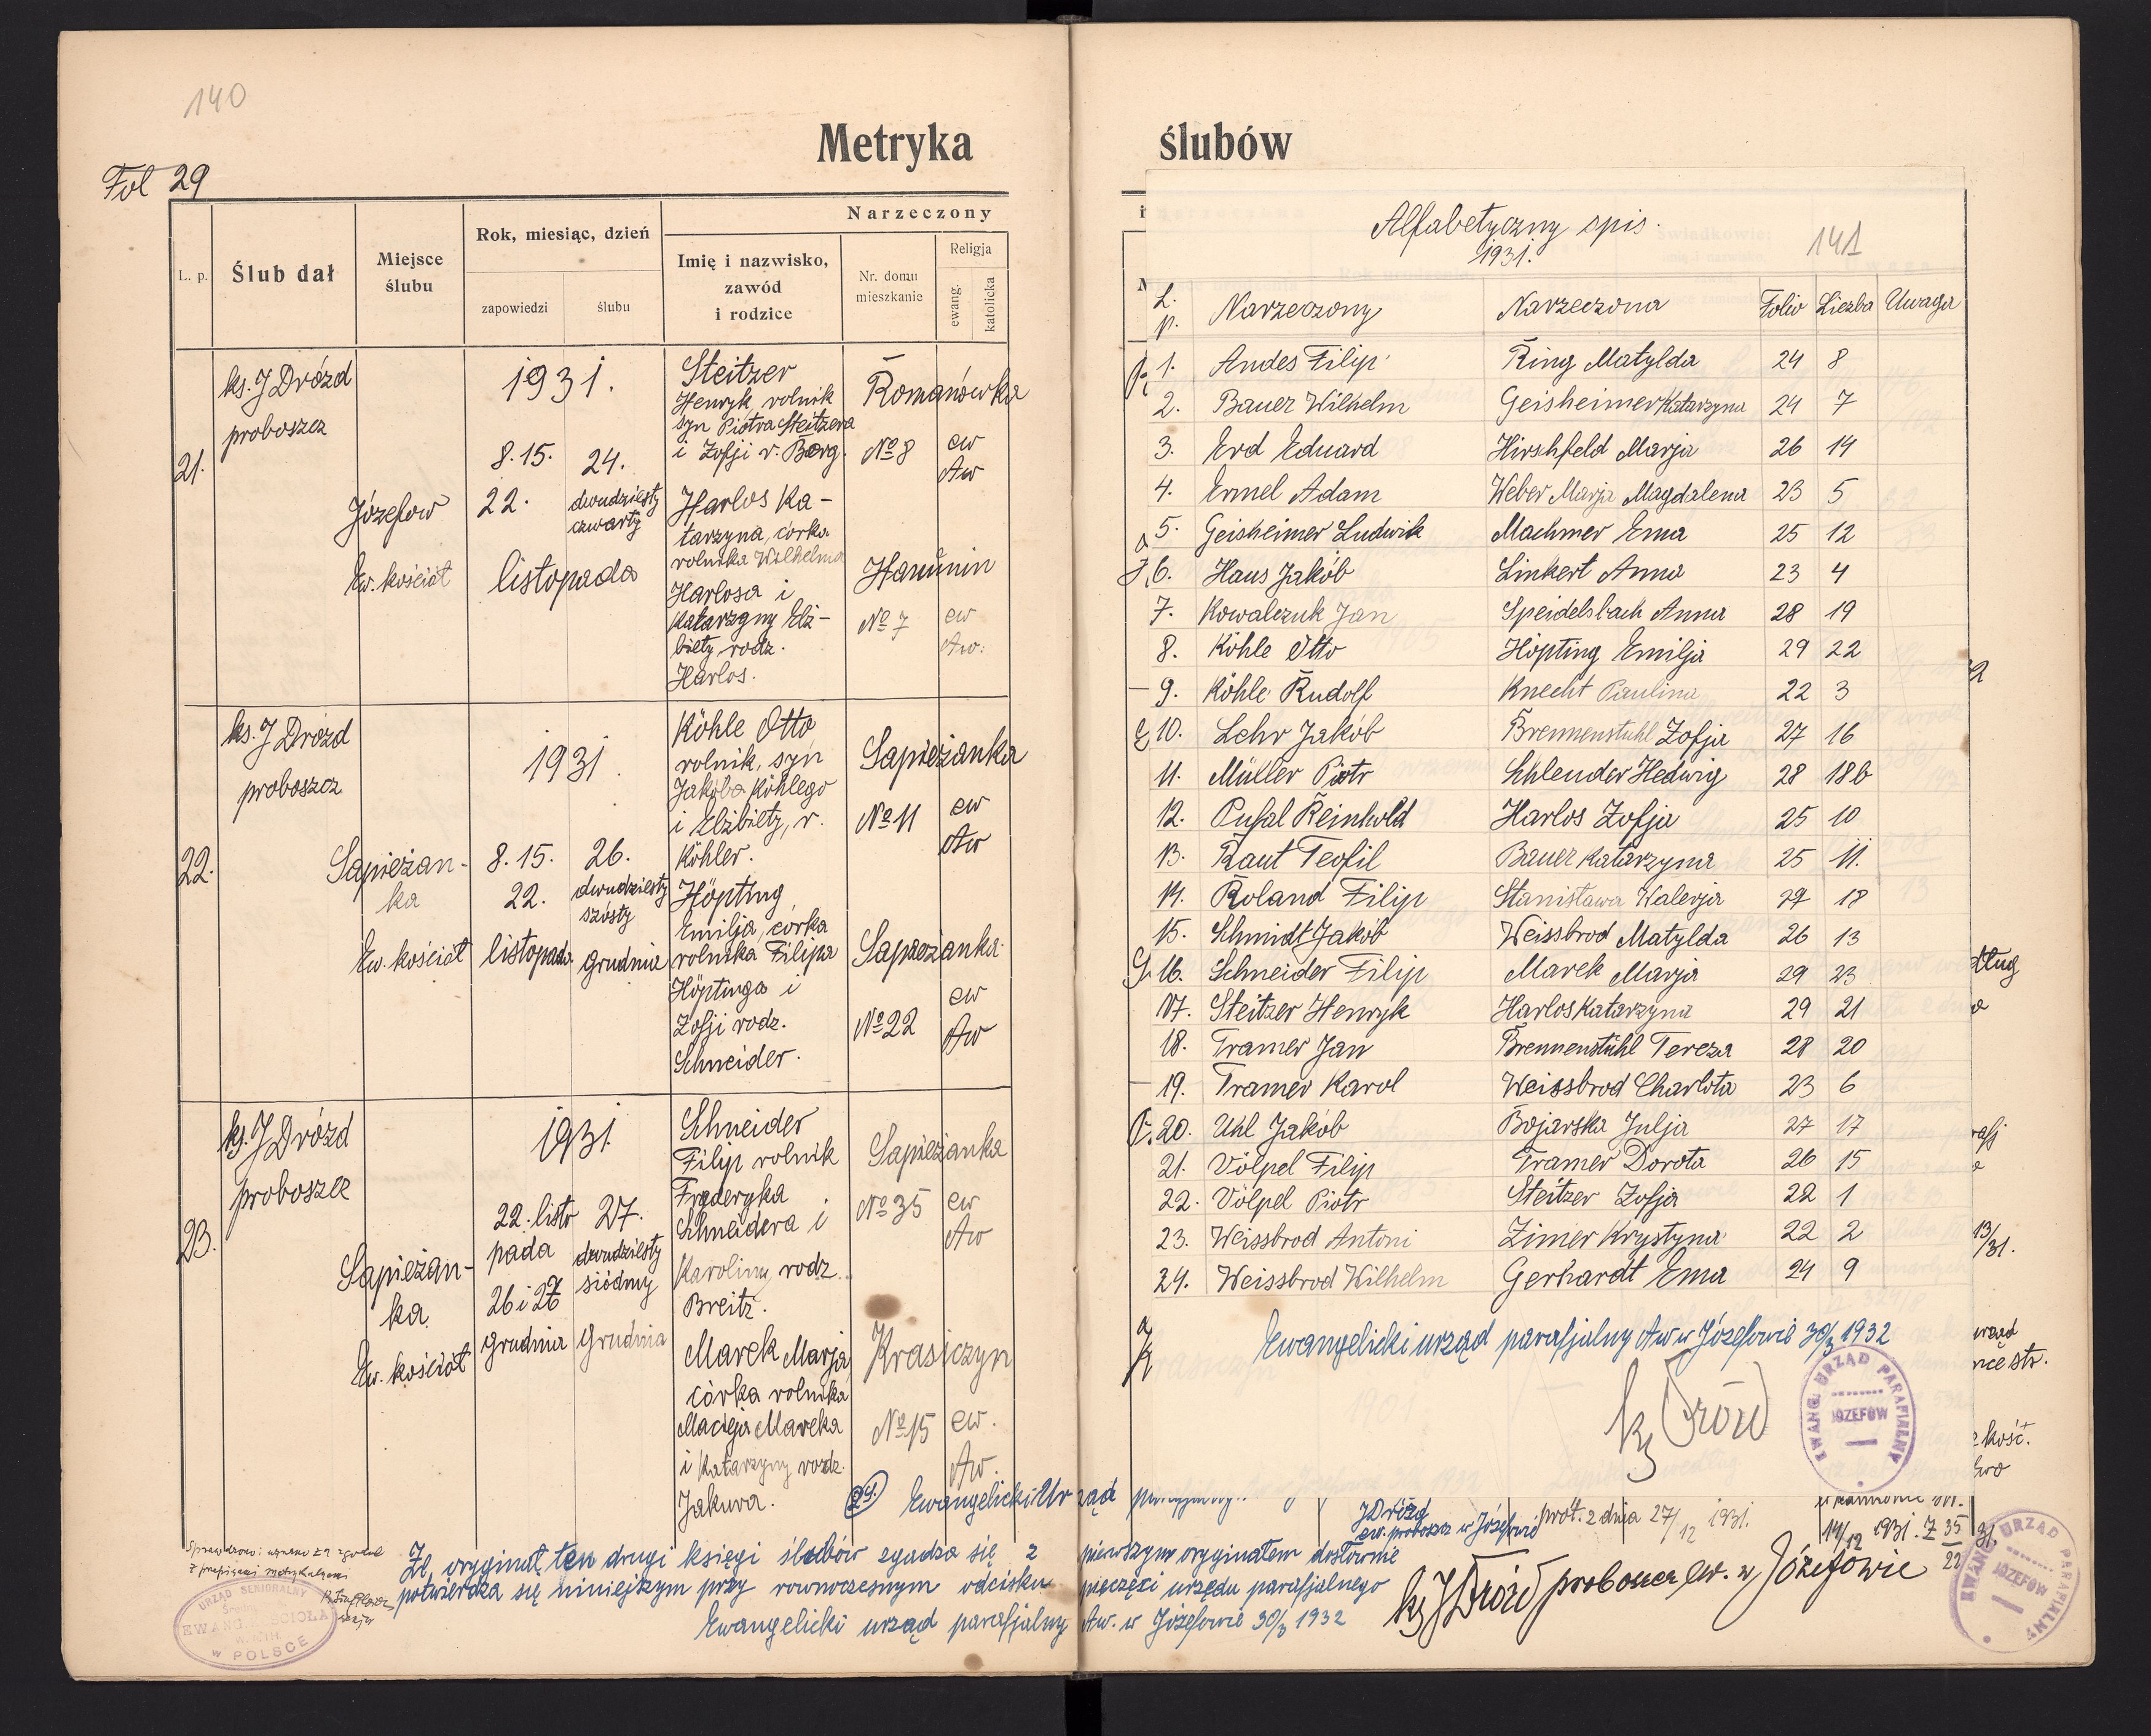 140
Metryka
Fol 29
L. p.
Ślub dał
Miejsce
ślubu
Rok, miesiąc, dzień
zapowiedzi
ślubu
Narzeczony
Imię i nazwisko,
zawód
i rodzice
Nr. domu
mieszkanie
Religja
ewang.
katolicka
21.
ks. J Drózd
proboszcz
Józefow
Ew. kościół
1931.
8. 15.
22.
24.
dwudziesty
czwarty
listopada
Steitzer
Henryk, rolnik
syn Piotra Steitzera
i Zofji r. Berg.
Romanówka
№ 8
ew
Aw
Harlos Ka-
tarzyna, córka
rolnika Wilhelma
Harlosa i
Katarzyny Elż-
biety rodz.
Harlos.
Hanunin
№ 7
ew
Aw.
22.
ks. J Drózd
proboszcz
Sapieżan-
ka
Ew. kościół
1931.
8. 15.
22.
listopada
26.
dwudziesty
szósty
grudnia
Köhle Otto
rolnik, syn
Jakóba Köhlego
i Elżbiety, r.
Köhler.
Sapieżanka
№ 11
ew
Aw
Höpting
Emilja, córka
rolnika Filipa
Höptinga i
Zofji rodz.
Schneider.
Sapieżanka
№ 22
ew
Aw
23.
ks. J Drózd
proboszcz
Sapieżan-
ka
Ew. kościół
1931
22. listo
pada
26 i 26
grudnia
27.
dwudziesty
siódmy
grudnia
Schneider
Filip rolnik
Fryderyka
Schneidera i
Karoliny, rodz.
Breitz.
Sapieżanka
№ 35
ew
Aw
Marek Marja,
córka rolnika
Macieja Mareka
i Katarzyny rodz.
Jakuva.
Krasiczyn
№ 15
ew.
Aw.
24. Ewangelicki Urząd
Że oryginał ten drugi księgi ślubów zgadza się z pierwszym oryginałem dosłownie
potwierdza się niniejszym przy równoczesnym odcisku pieczęci urzędu parafjalnego
Ewangelicki urząd parafjalny Aw. w Józefowie 30/3 1932
URZĄD SENIORALNY
EWANG. KOŚCIOŁA
W POLSCE
ślubów
Alfabetyczny spis.
1931.
141
L. p. Narzeczony Narzeczona Folio Liczba Uwaga
1. Andes Filip Ring Matylda 24 8
2. Bauer Wilhelm Geisheimer Katarzyna 24 7
3. Erd Eduard Hirschfeld Marja 26 14
4. Ermel Adam Weber Marja Magdalena 23 5
5. Geisheimer Ludwik Machmer Ema 25 12
6. Haus Jakób Linkert Anna 23 4
7. Kowalczuk Jan Speidelsbach Anna 28 19
8. Köhle Otto Höpting Emilja 29 22
9. Köhle Rudolf Knecht Paulina 22 3
10. Lehr Jakób Brennenstuhl Zofja 27 16
11. Müller Piotr Schlender Hedwig 28 18b
12. Pufal Reinhold Harlos Zofja 25 10
13. Raut Teofil Bauer Katarzyna 25 11.
14. Roland Filip Stanisława Walerja 27 18
15. Schmidt Jakób Weissbrod Matylda 26 13
16. Schneider Filip Marek Marja 29 23
17. Steitzer Henryk Harlos Katarzyna 29 21
18. Tramer Jan Brennenstuhl Tereza 28 20
19. Tramer Karol Weissbrod Charlota 23 6
20. Uhl Jakób Bojarska Julja 27 17
21. Völpel Filip Tramer Dorota 26 15
22. Völpel Piotr Steitzer Zofja 22 1
23. Weissbrod Antoni Zimer Krystyna 22 2
24. Weissbrod Wilhelm Gerhardt Ema 24 9
Ewangelicki urząd parafjalny Aw w Józefowie 30/3 1932
ks Drózd
EWANG. URZĄD PARAFIALNY
JÓZEFÓW
J Drózd
ew. proboszcz w Józefowie
prot. z dnia 27/12 1931.
14/12 1931. Z 35/22 31.
ks J Drózd proboszcz ew. w Józefowie
EWANG. URZĄD PARAFIALNY
JÓZEFÓW